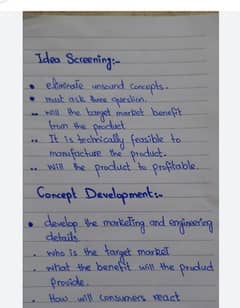 Idea Screening:-
• eliminate unsound concepts.
• must ask three question.
.. will the target market benefit
from the product
.. It is technically feasible to
manufacture the product.
.. will the product to profitable.
Concept Development:-
• develop the marketing and engineering
details
. who is the target market
. what the benefit will the product
provide.
. How will consumers react